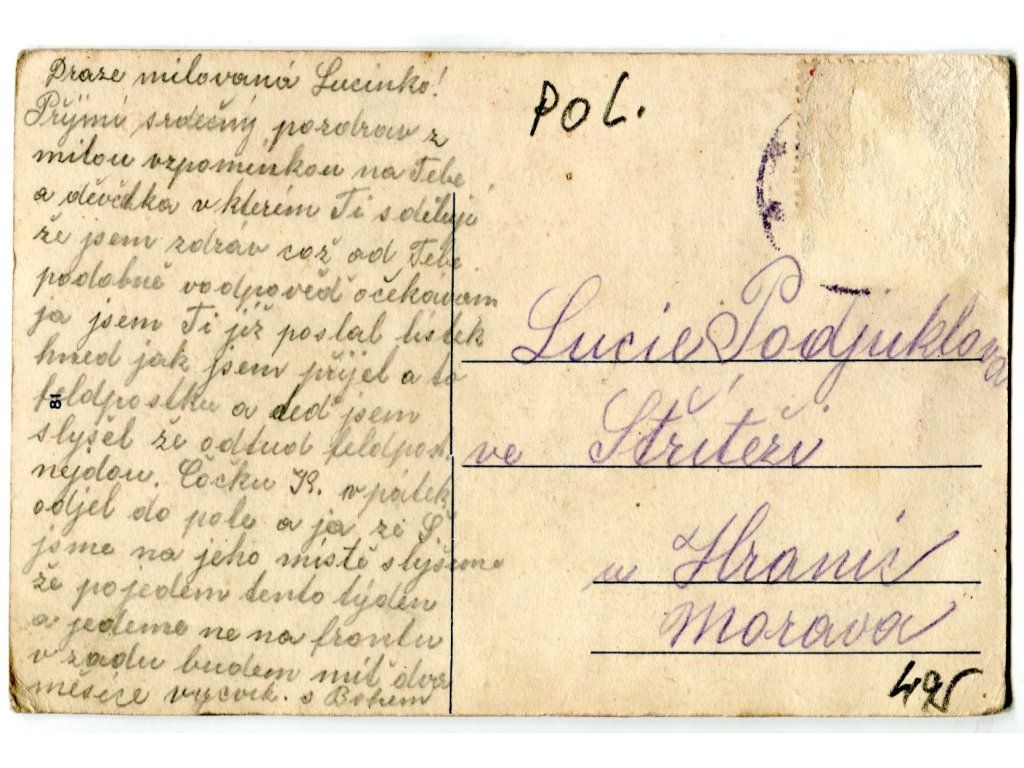 Draze milovaná Lucinko!
Přÿmi srdečný pozdrav z
milou vzpomínkou na Tebe
a děvčtka v kterém Ti sděluji
že jsem zdráv což od Tebe
podobně voodpověď očekavam
ja jsem Ti již poslal lístek
hned jak jsem přijel a to
feldpostku a teď jsem
slyšel že odtud feldpos.
nejdou. Čočku K. v pátek
odjel do pole a ja ze Š
jsme na jeho místě slyšeme
že pojedem tento týden
a jedeme ne na frontu
v zadu budem mít dva
měsíce vycvik. s Bohem
81
POL.
Lucie Podjuklova
ve Střiteži
u Hranic
Morava
495